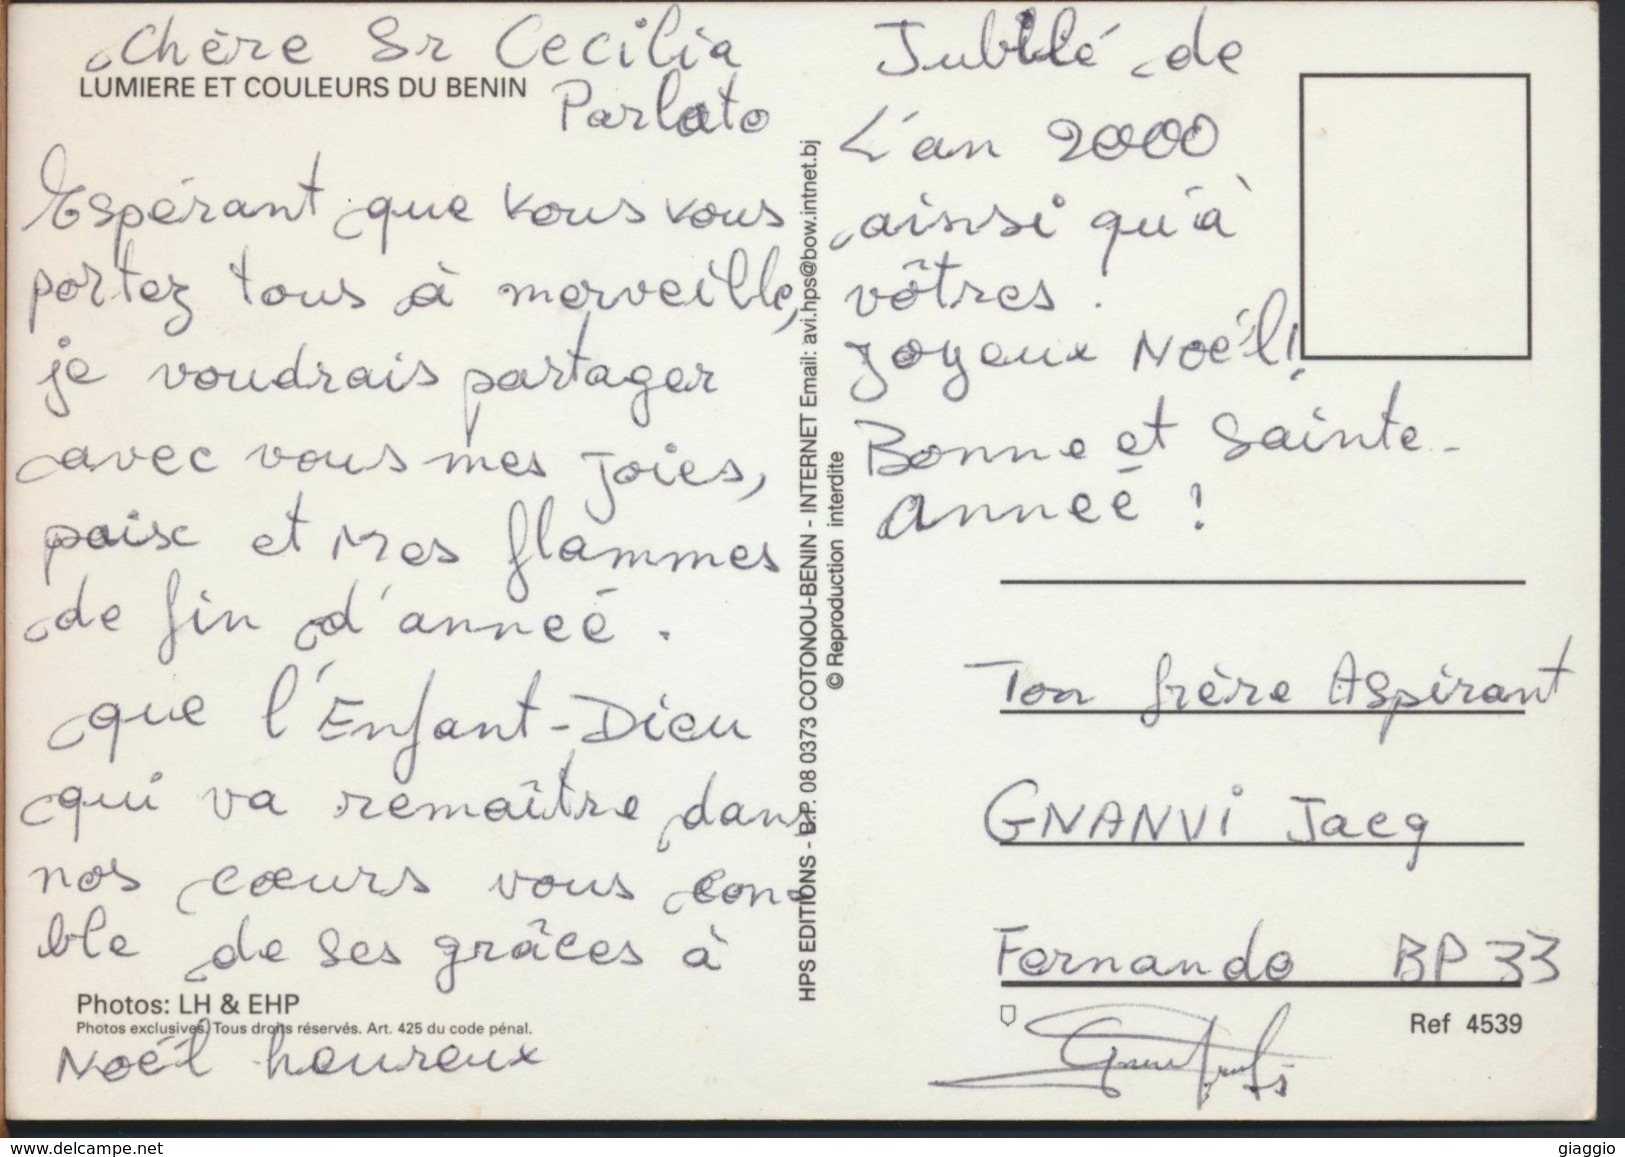 Chère Sr Cecilia
LUMIERE ET COULEURS DU BENIN
Parlato
Espérant que vous vous
portez tous à merveille,
je voudrais partager
avec vous mes joies,
paix et mes flammes
de fin d'anneé.
que l'Enfant-Dieu
qui va remaître dans
nos cœurs vous com-
ble de ses grâces à
Photos: LH & EHP
Photos exclusives. Tous droits réservés. Art. 425 du code pénal.
Noél heureux
HPS EDITIONS - B.P. 08 0373 COTONOU-BENIN - INTERNET Email: avi.hps@bow.intnet.bj
© Reproduction interdite
Jubilé de
L'an 2000
ainsi qu'à
vôtres.
Joyeux Noél!
Bonne et Sainte-
anneé!
Ton frère Aspirant
GNANVi Jacq
Fernando BP 33
Ref 4539
giaggio